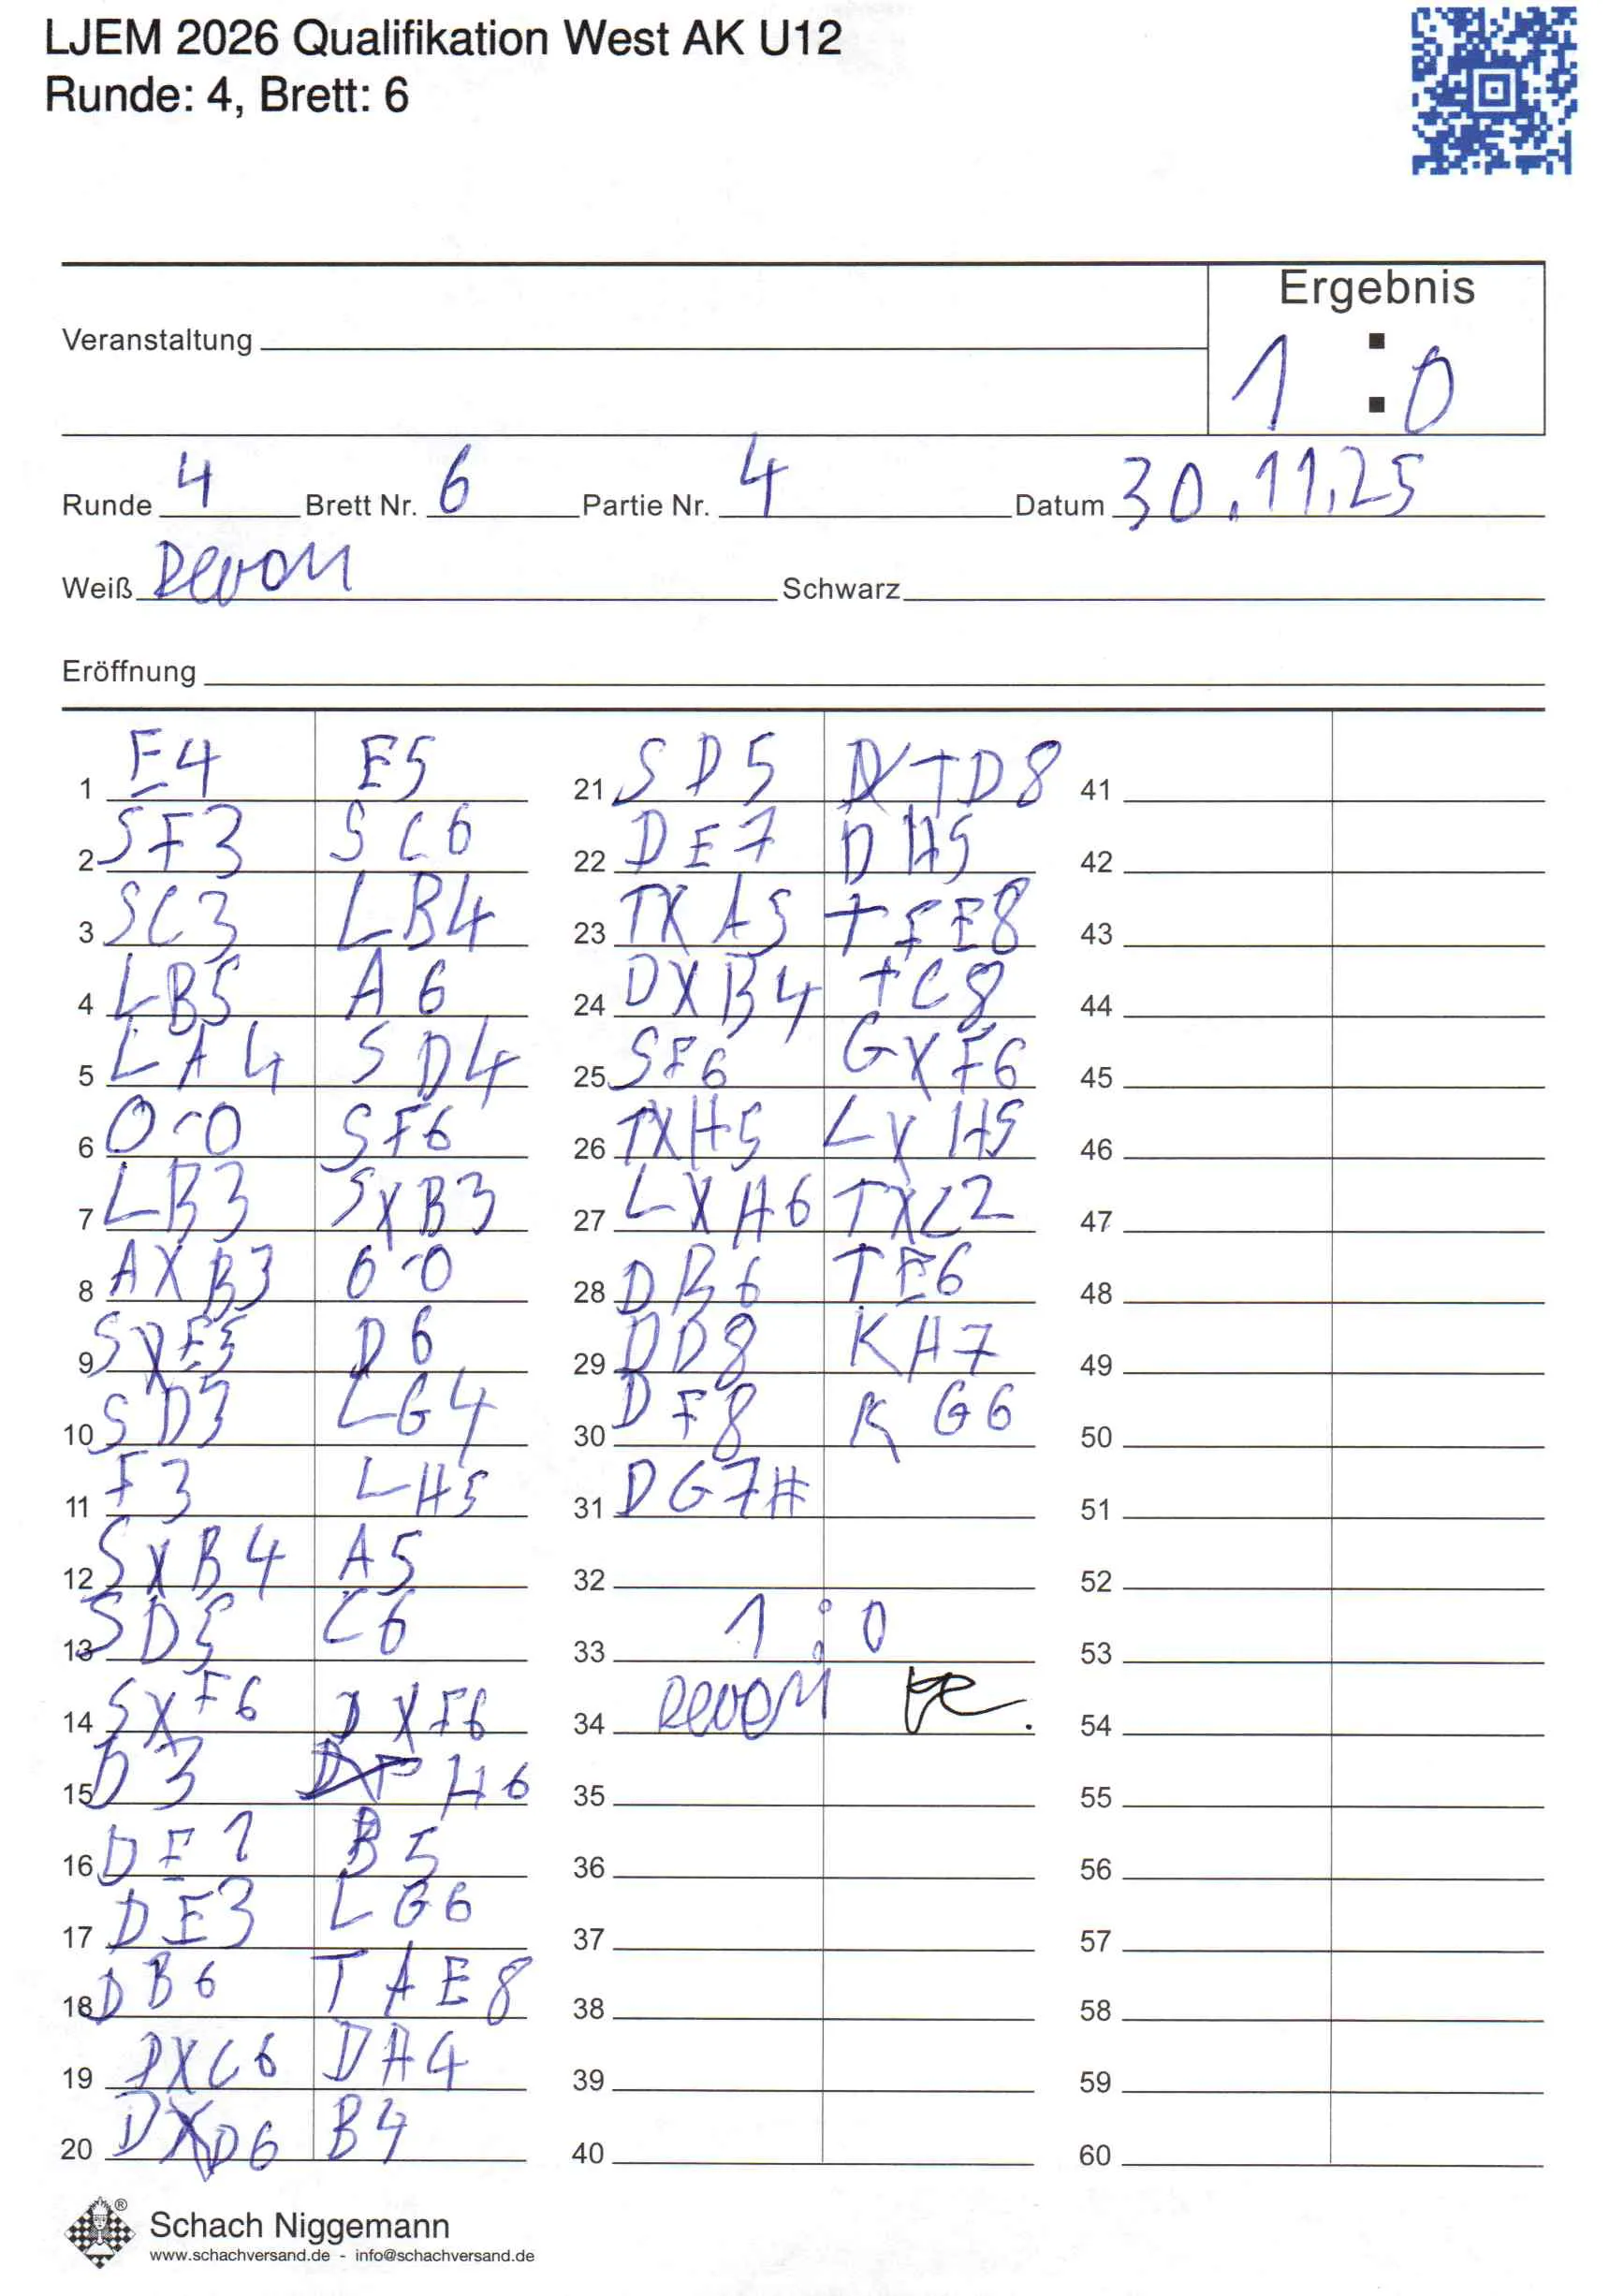 LJEM 2026 Qualifikation West AK U12
Runde: 4, Brett: 6
Ergebnis
1 : 0
Veranstaltung
Runde 4 Brett Nr. 6 Partie Nr. 4 Datum 30.11.25
Weiß Devon Schwarz
Eröffnung
1 E4 E5
2 SF3 SC6
3 SC3 LB4
4 LB5 A6
5 LA4 SD4
6 0-0 SF6
7 LB3 SXB3
8 AXB3 0-0
9 SXE5 D6
10 SD3 LG4
11 F3 LH5
12 SXB4 A5
13 SD5 C6
14 SXF6 DXF6
15 D3 H6
16 DE1 B5
17 DE3 LG6
18 DB6 TAE8
19 DXC6 DH4
20 DXD6 B4
21 SD5 TD8
22 DE7 DH5
23 TXA5 TFE8
24 DXB4 TC8
25 SF6 GXF6
26 TXH5 LXH5
27 LXH6 TXC2
28 DB6 TE6
29 DD8 KH7
30 DF8 KG6
31 DG7#
32
33 1:0
34 Devon
35
36
37
38
39
40
41
42
43
44
45
46
47
48
49
50
51
52
53
54
55
56
57
58
59
60
®
Schach Niggemann
www.schachversand.de - info@schachversand.de